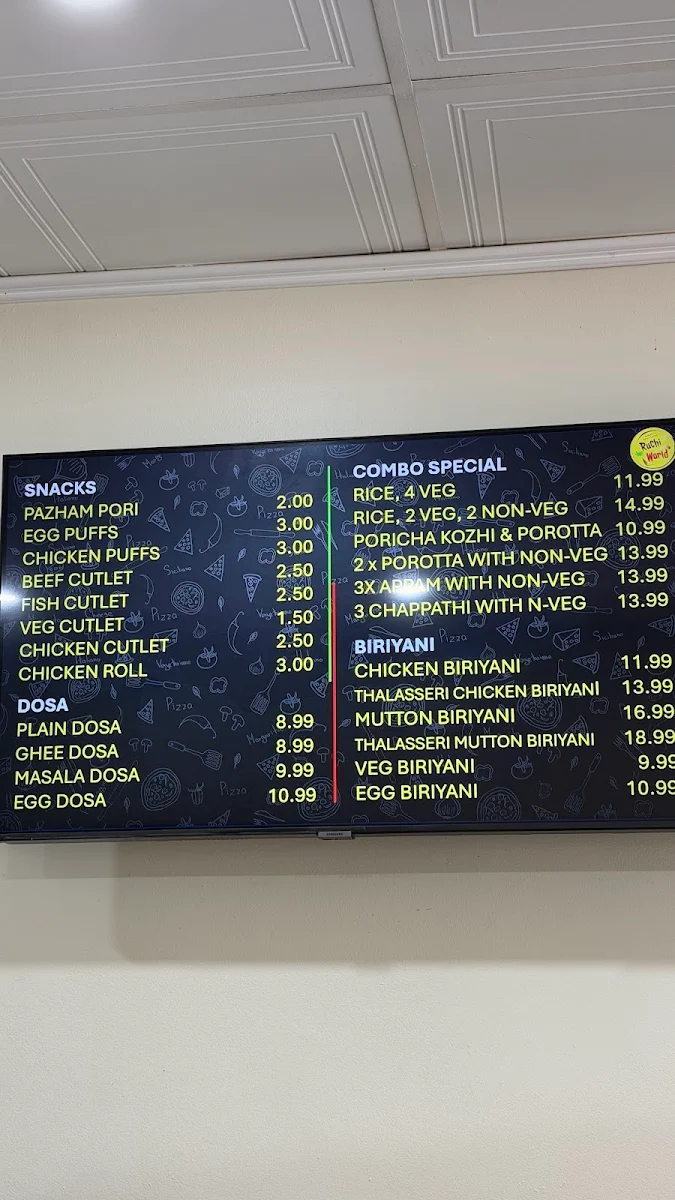 SNACKS
PAZHAM PORI 2.00
EGG PUFFS 3.00
CHICKEN PUFFS 3.00
BEEF CUTLET 2.50
FISH CUTLET 2.50
VEG CUTLET 1.50
CHICKEN CUTLET 2.50
CHICKEN ROLL 3.00
DOSA
PLAIN DOSA 8.99
GHEE DOSA 8.99
MASALA DOSA 9.99
EGG DOSA 10.99
Ruchi
World
COMBO SPECIAL
RICE, 4 VEG 11.99
RICE, 2 VEG, 2 NON-VEG 14.99
PORICHA KOZHI & POROTTA 10.99
2 x POROTTA WITH NON-VEG 13.99
3X APPAM WITH NON-VEG 13.99
3 CHAPPATHI WITH N-VEG 13.99
BIRIYANI
CHICKEN BIRIYANI 11.99
THALASSERI CHICKEN BIRIYANI 13.99
MUTTON BIRIYANI 16.99
THALASSERI MUTTON BIRIYANI 18.99
VEG BIRIYANI 9.99
EGG BIRIYANI 10.99
SAMSUNG